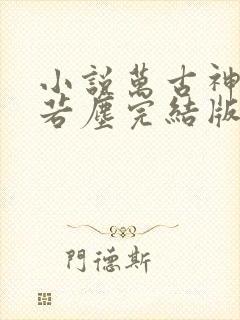 小說萬古神
若塵完結版
門德斯